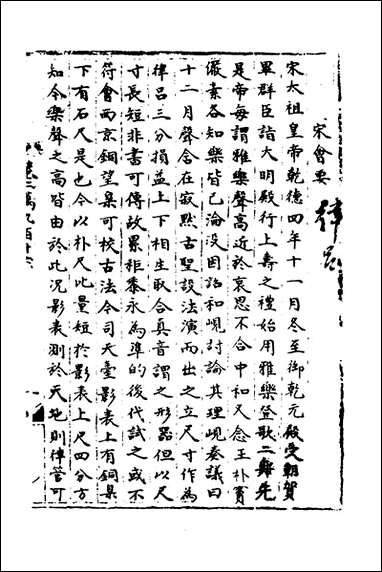 宋會要
律呂
宋太祖皇帝乾德四年十一月冬至御乾元殿受朝賀
畢群臣詣大明殿行上壽之禮始用雅樂登歌二舞先
是帝每謂雅樂聲高近於哀思不合中和又念王朴竇
儼素各知樂皆已淪沒因詔和峴討論其理峴奏議曰
十二月聲含在寂默古聖設法演而出之立尺寸作為
律呂三分損益上下相生取合真音謂之形器但以尺
寸長短非書可傳故累秬黍永為準的後代試之或不
符會西京銅望臬可校古法今司天臺影表上有銅臬
下有石尺是也今以朴尺比量短於影表上尺四分方
知今樂聲之高皆由於此況影表測於天地則律管可